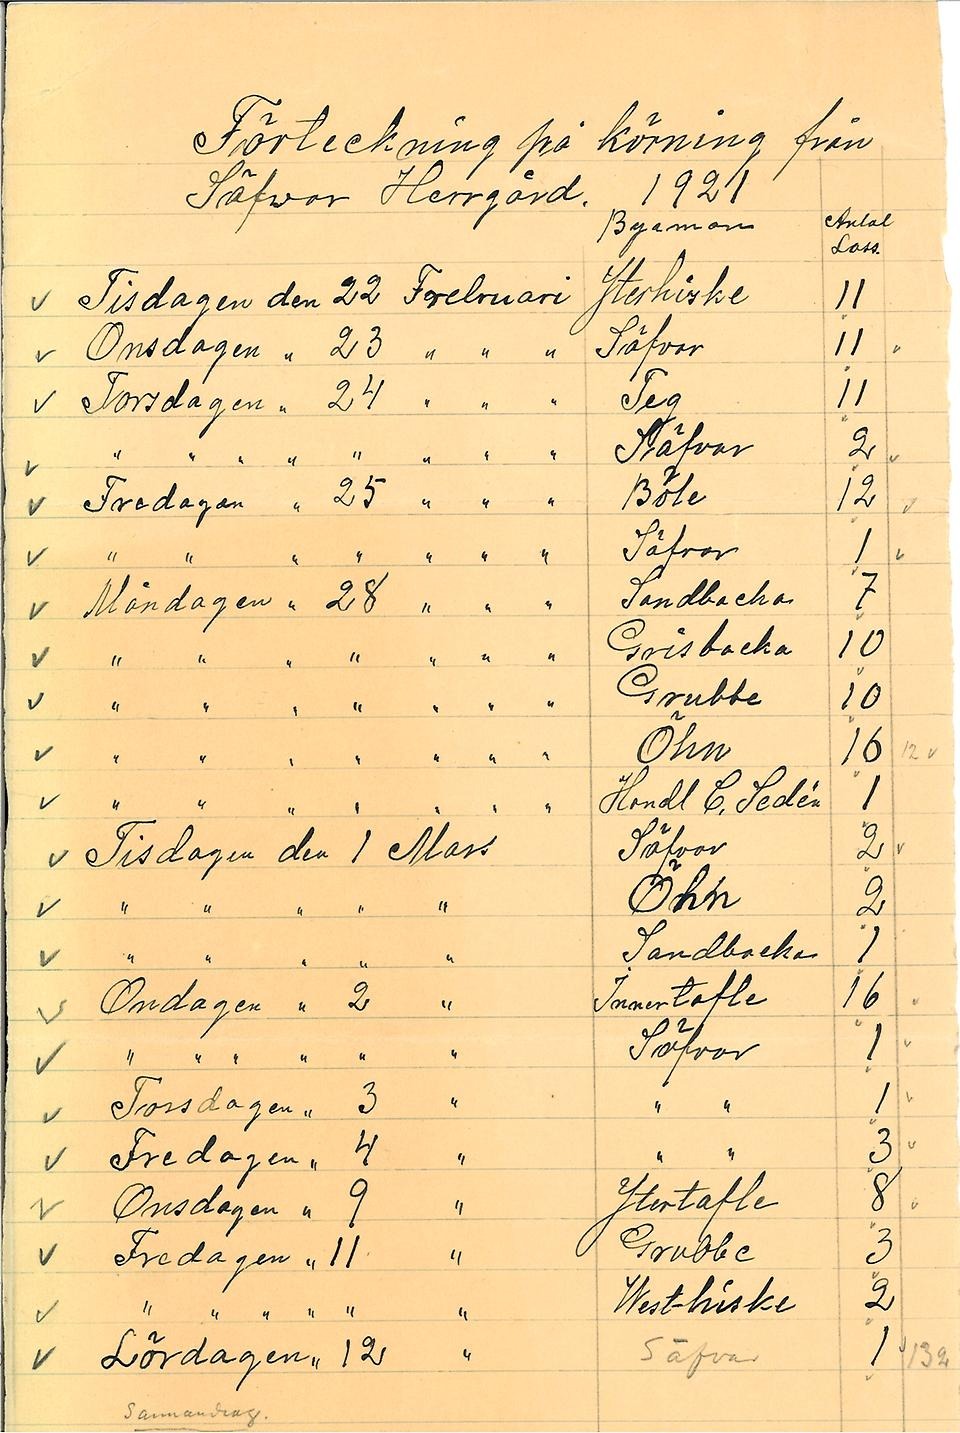 Förteckning på körning från
Säfvar Herrgård. 1921
Byamän Antal
Lass.
✓ Tisdagen den 22 Frebruari Ytterhiske 11
✓ Onsdagen „ 23 „ „ „ Säfvar 11
✓ Torsdagen „ 24 „ „ „ Teg 11
✓ „ „ „ „ „ „ „ „ Säfvar 2 ✓
✓ Fredagen „ 25 „ „ „ Böle 12 ✓
✓ „ „ „ „ „ „ „ Säfvar 1 ✓
✓ Måndagen „ 28 „ „ „ Sandbacka 7
✓ „ „ „ „ „ „ „ Grisbacka 10
✓ „ „ „ „ „ „ „ Grubbe 10
✓ „ „ „ „ „ „ „ Öhn 16 12 ✓
✓ „ „ „ „ „ „ „ Handl C. Sedén 1
✓ Tisdagen den 1 Mars Säfvar 2 ✓
✓ „ „ „ „ „ Öhn 2
✓ „ „ „ „ „ Sandbacka 1
✓ Ondagen „ 2 „ Innertafle 16
✓ „ „ „ „ „ „ Säfvar 1 ✓
✓ Torsdagen „ 3 „ „ „ 1 ✓
✓ Fredagen „ 4 „ „ „ 3 ✓
✓ Onsdagen „ 9 „ Yttertafle 8
✓ Fredagen „ 11 „ Grubbe 3
✓ „ „ „ „ „ „ West-hiske 2
✓ Lördagen „ 12 „ Säfvar 1 ✓ 132
Sammandrag.